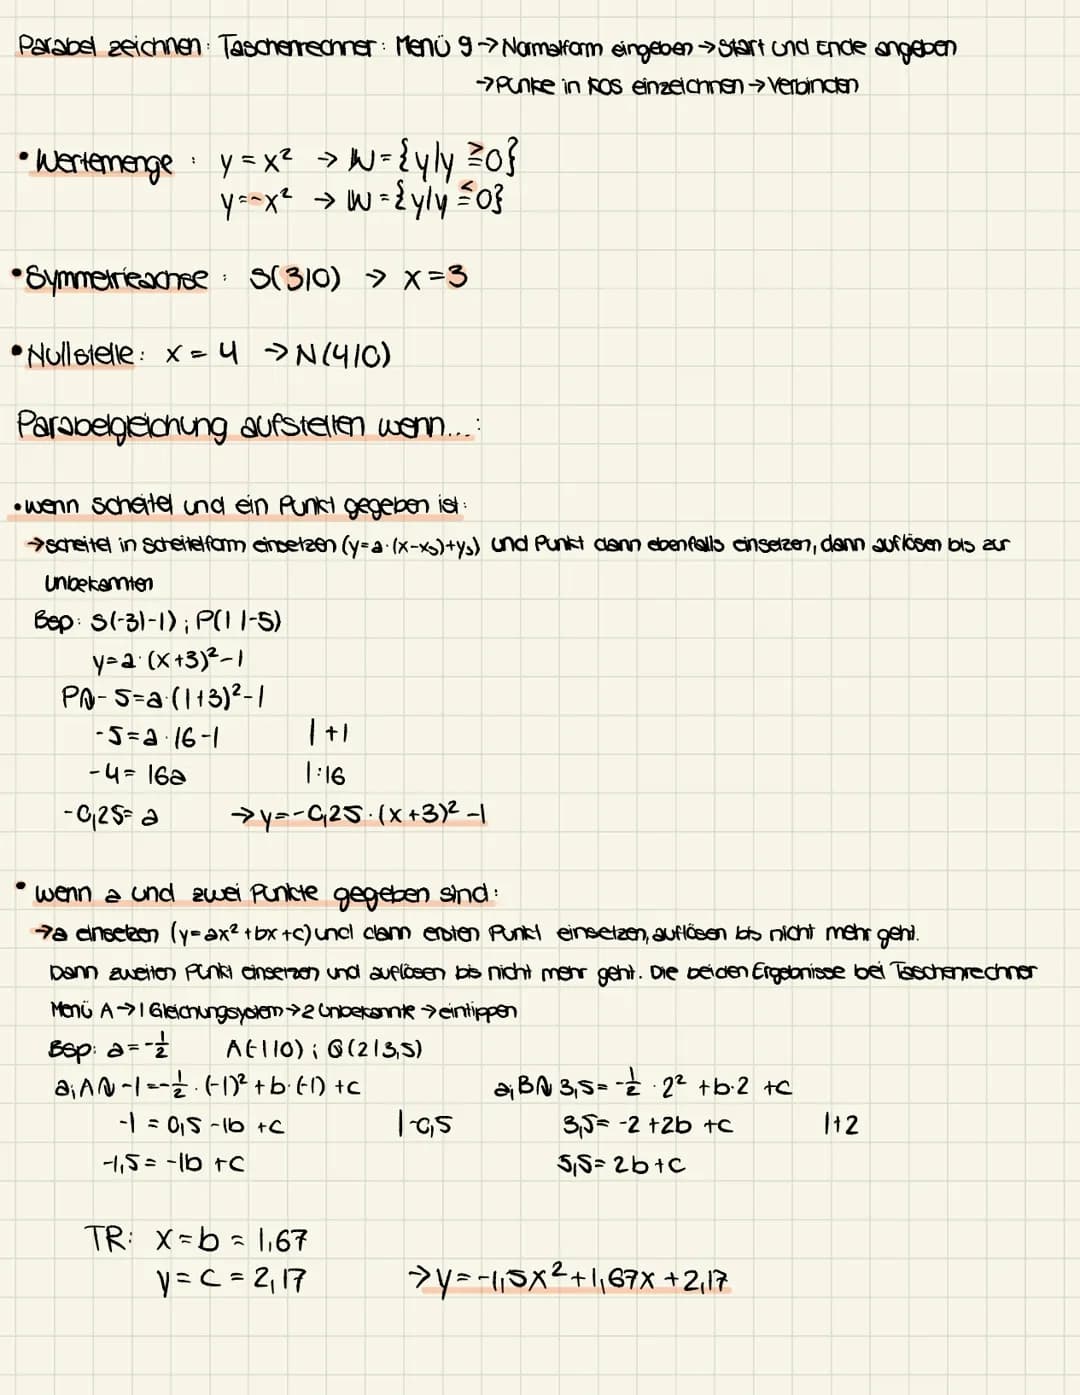 Parabel zeichnen: Taschenrechner: Menü 9 → Normalform eingeben → Start und Ende angeben
→ Punke in KOS einzeichnen → Verbinden
• Wertemenge : y = x² → W = {y|y ≥ 0}
y = -x² → W = {y|y ≤ 0}
• Symmetrieachse : S(3|0) → x = 3
• Nullstelle : x = 4 → N(4|0)
Parabelgleichung aufstellen wenn...:
• wenn Scheitel und ein Punkt gegeben ist:
→ Scheitel in Scheitelform einsetzen (y=a·(x-xs)+ys) und Punkt dann ebenfalls einsetzen, dann auflösen bis zur
Unbekannten
Bsp: S(-3|-1) ; P(1|-5)
y=a·(x+3)²-1
P∩ -5=a·(1+3)²-1
-5=a·16-1 |+1
-4= 16a |:16
-0,25= a → y=-0,25·(x+3)²-1
• wenn a und zwei Punkte gegeben sind:
→ a einsetzen (y=ax²+bx+c) und dann ersten Punkt einsetzen, auflösen bis nicht mehr geht.
Dann zweiten Punkt einsetzen und auflösen bis nicht mehr geht. Die beiden Ergebnisse bei Taschenrechner
Menü A → 1 Gleichungsystem → 2 Unbekannte → eintippen
Bsp: a=-½ A(-1|0) ; B(2|3,5)
a;A∩ -1=-½·(-1)²+b·(-1)+c a;B∩ 3,5=-½·2²+b·2+c
-1 = 0,5 -1b +c |-0,5 3,5= -2+2b +c |+2
-1,5= -1b +c 5,5= 2b+c
TR: x=b = 1,67
y=c = 2,17 → y=-1,5x²+1,67x+2,17